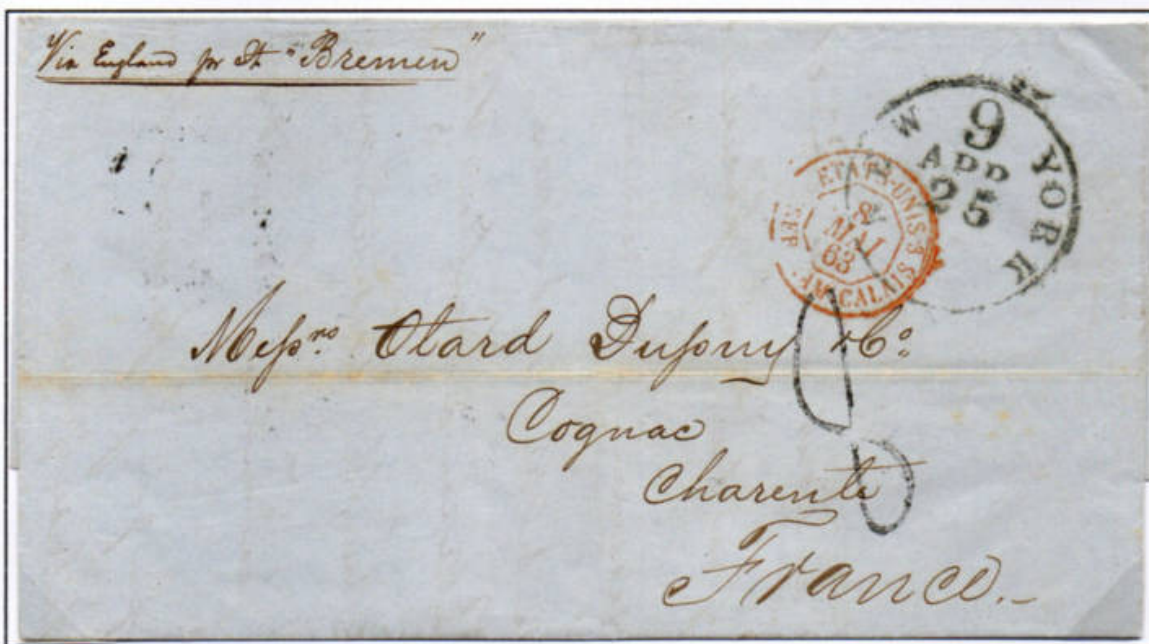 Via England pr St "Bremen"
W YORK
9
APR
25
ETATS-UNIS
8
MAI
63
AM. CALAIS
Messrs Otard Dupuy & Co:
Cognac
Charente
France.-
8